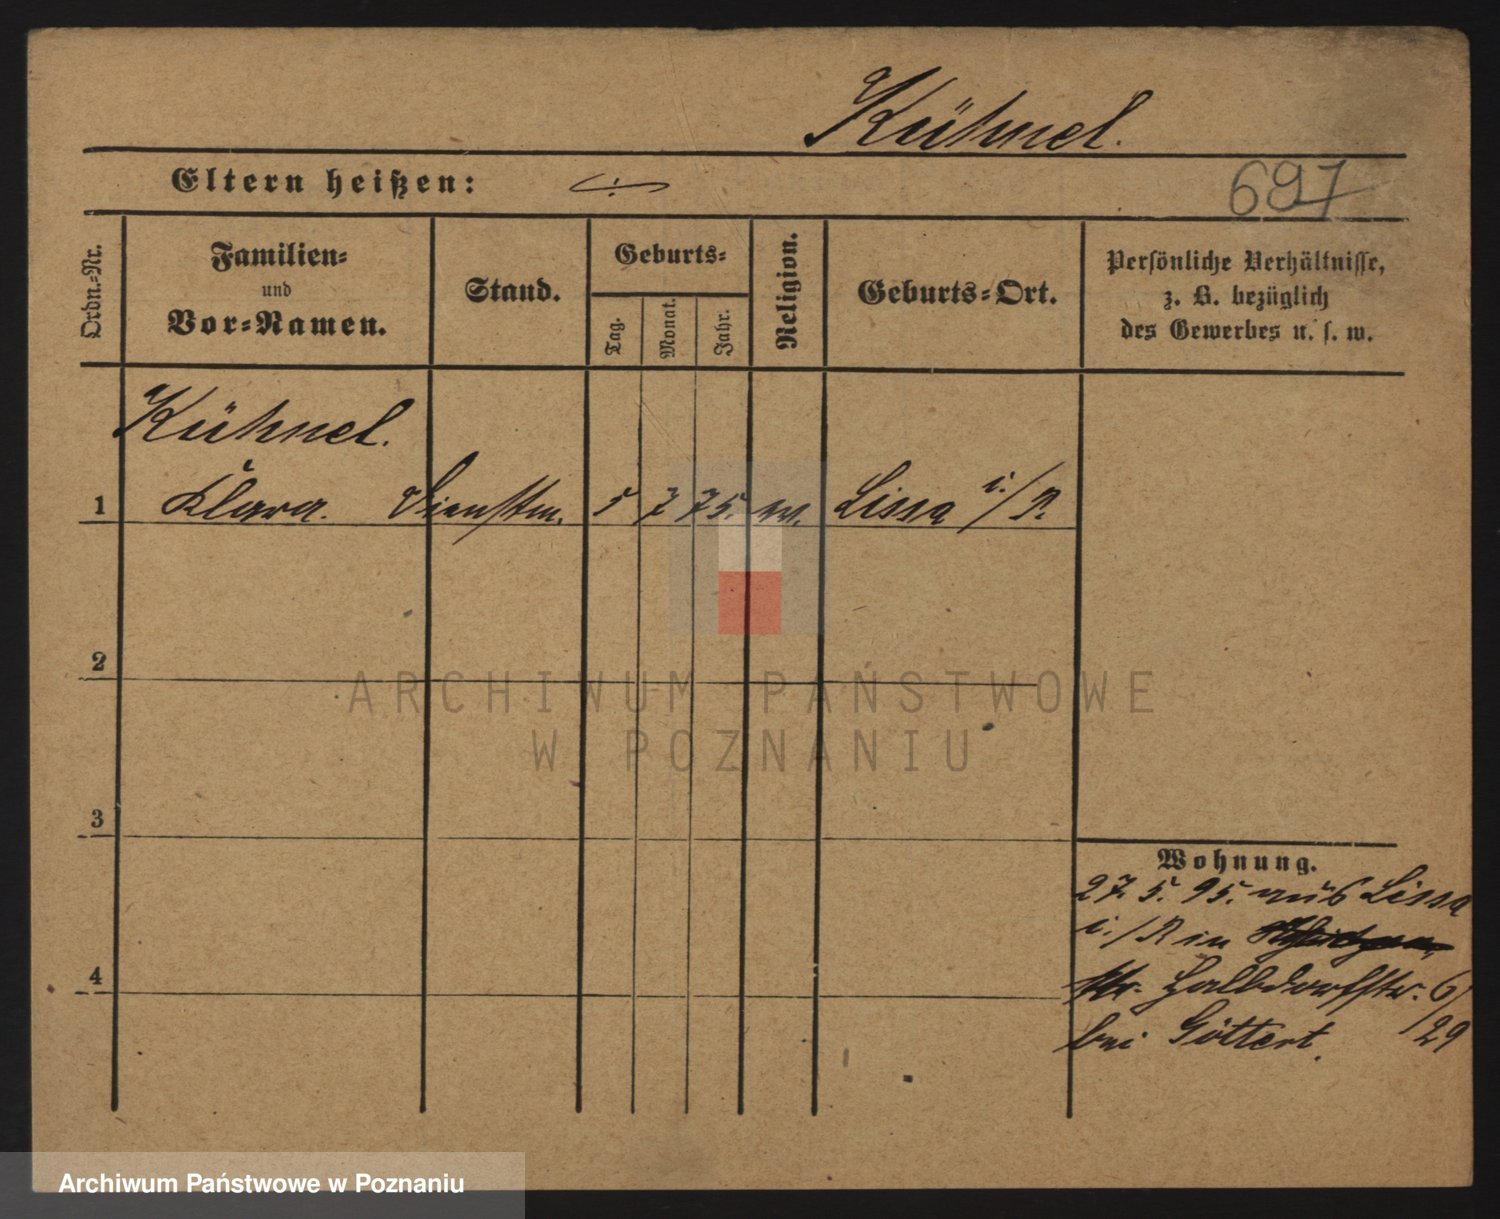 Kühnel.
Eltern heißen:
697
Ordn.-Nr.
Familien-
und
Vor-Namen.
Stand.
Geburts-
Tag.
Monat.
Jahr.
Religion.
Geburts-Ort.
Persönliche Verhältnisse,
z. B. bezüglich
des Gewerbes u. s. w.
Kühnel.
1 Klara. Dienstm. 5 7 75. Lissa i./P.
2
3
4
Wohnung.
27. 5. 95. aus Lissa
i./P. in
Halbdorfstr. 6/
29
bei Göttert.
ARCHIWUM PAŃSTWOWE
W POZNANIU
Archiwum Państwowe w Poznaniu